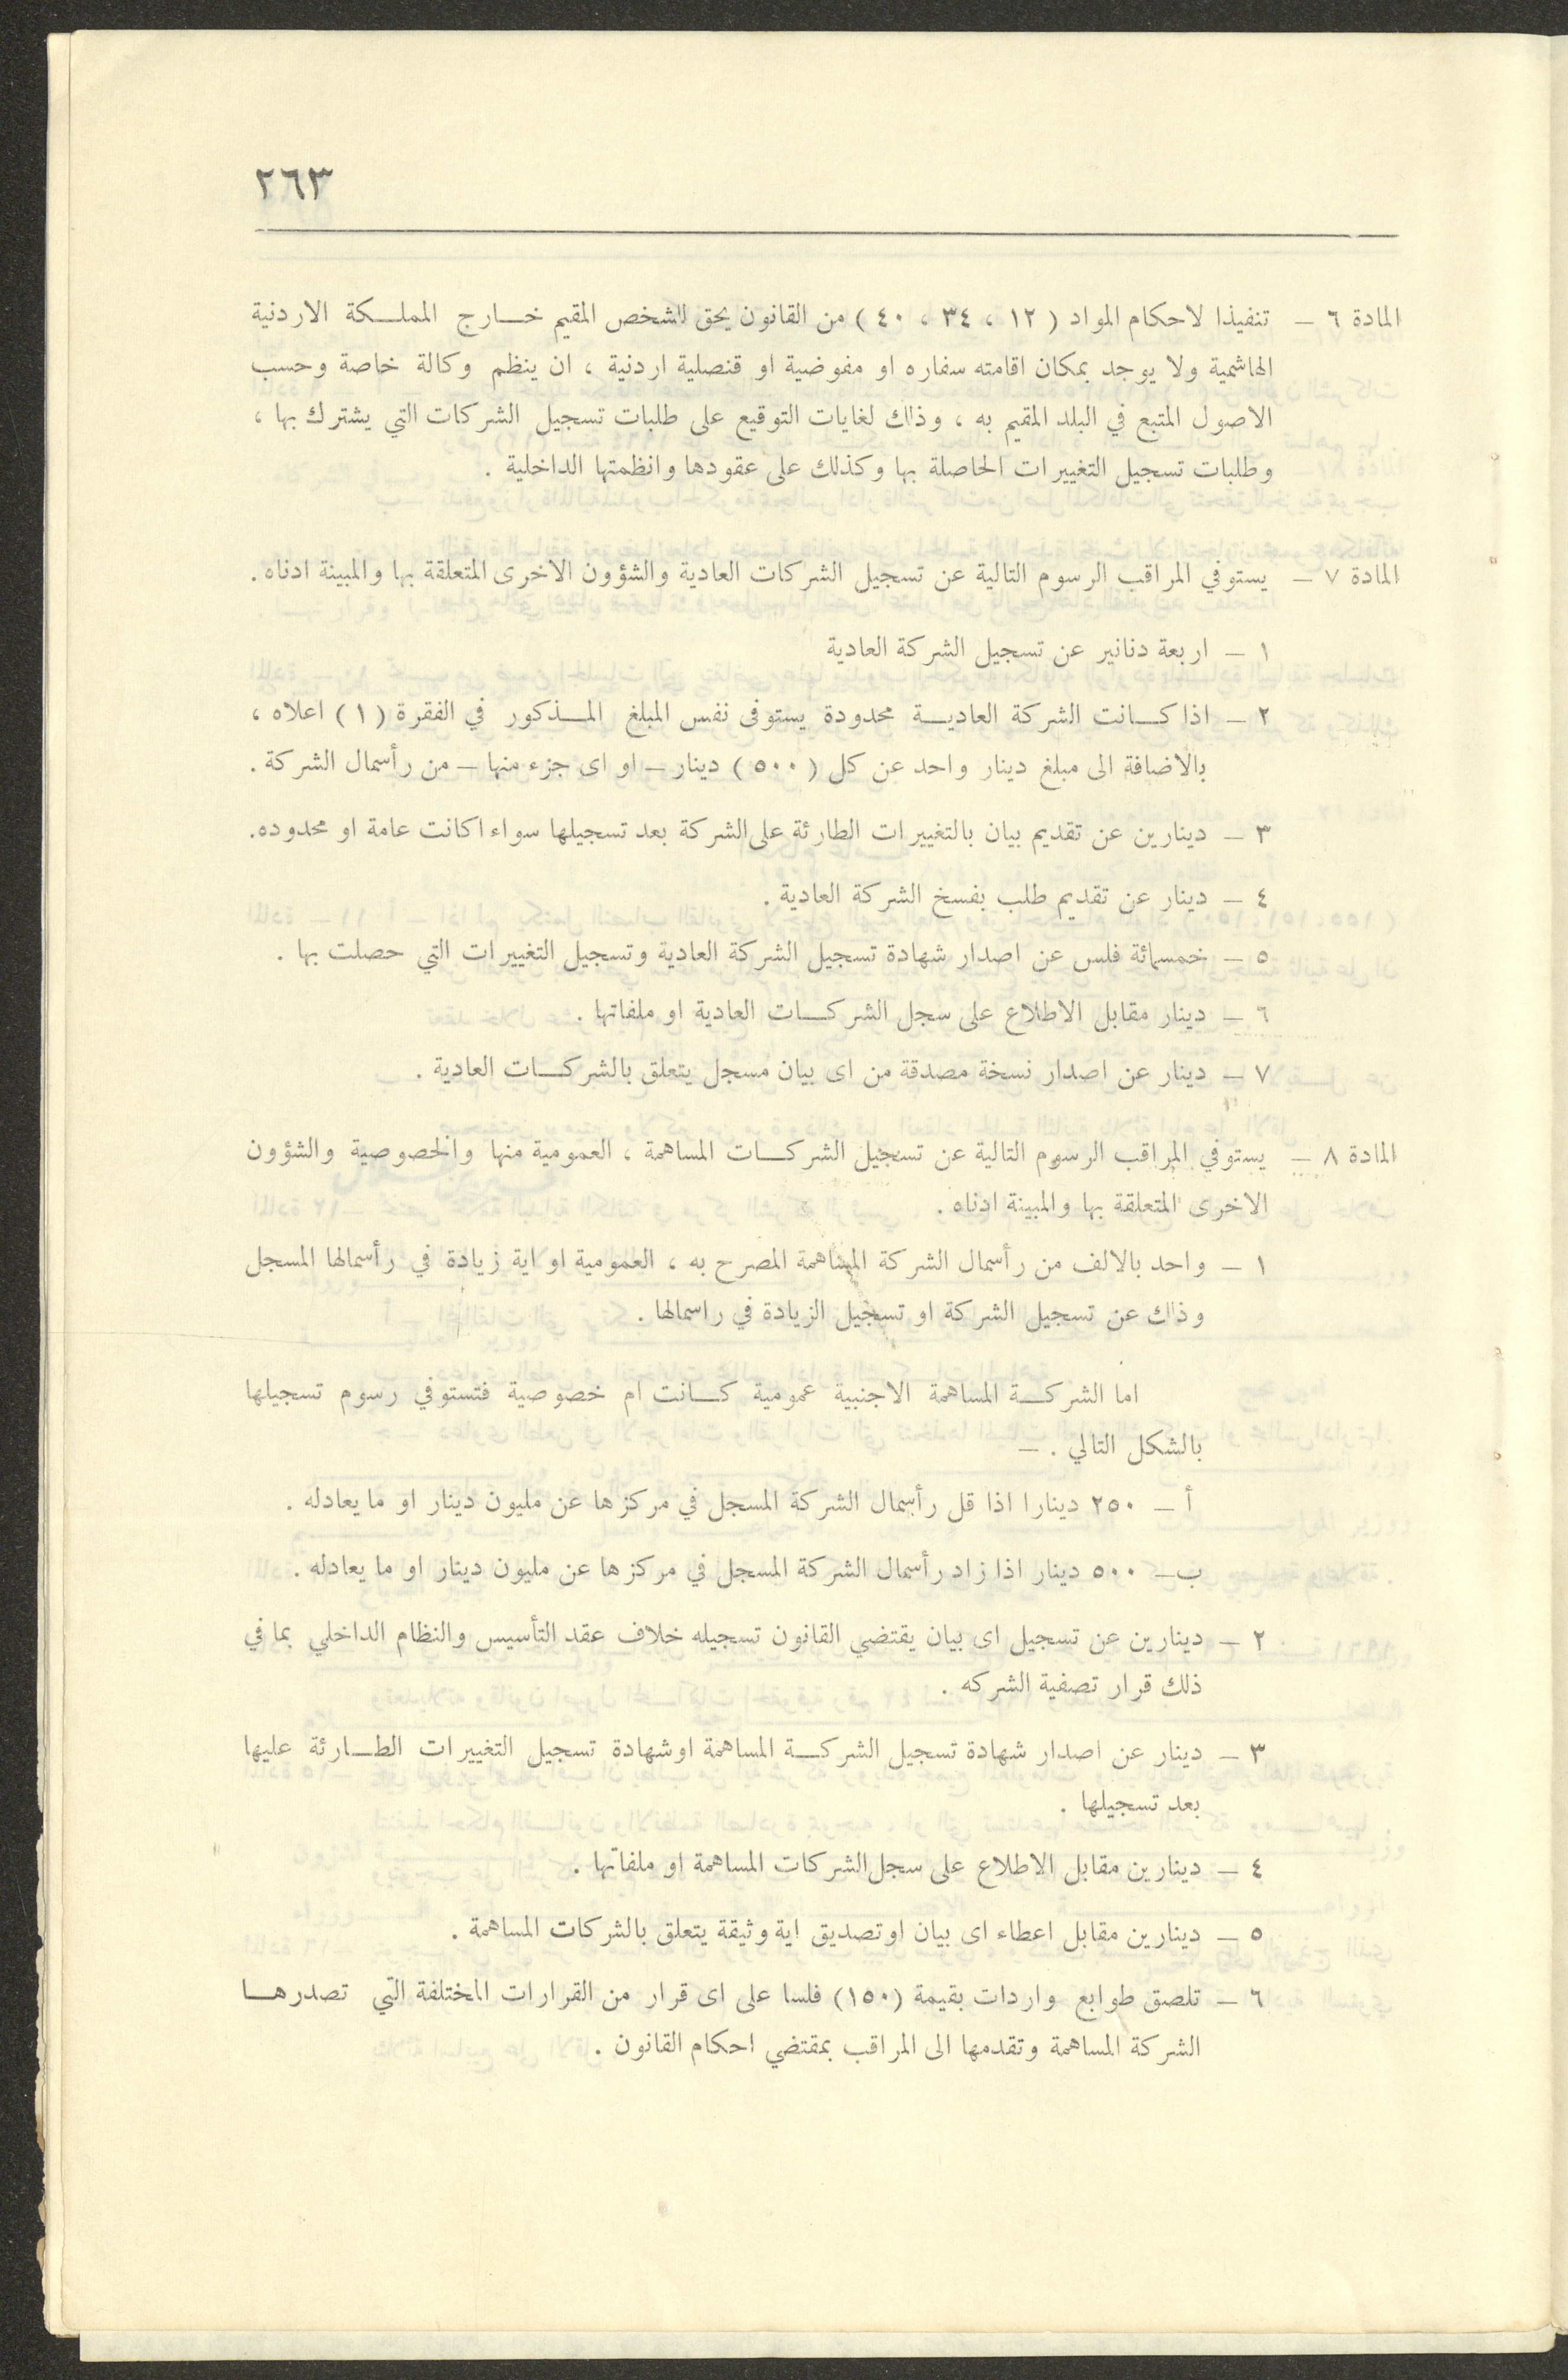 ٢٦٣
المادة ٦ — تنفيذا لاحكام المواد ( ١٢ ، ٣٤ ، ٤٠ ) من القانون يحق للشخص المقيم خـــارج المملـــكة الاردنية
الهاشمية ولا يوجد بمكان اقامته سفاره او مفوضية او قنصلية اردنية ، ان ينظم وكالة خاصة وحسب
الاصول المتبع في البلد المقيم به ، وذلك لغايات التوقيع على طلبات تسجيل الشركات التي يشترك بها ،
وطلبات تسجيل التغييرات الحاصلة بها وكذلك على عقودها وانظمتها الداخلية .
المادة ٧ — يستوفي المراقب الرسوم التالية عن تسجيل الشركات العادية والشؤون الاخرى المتعلقة بها والمبينة ادناه .
١ — اربعة دنانير عن تسجيل الشركة العادية
٢ — اذا كـــانت الشركة العاديـــة محدودة يستوفى نفس المبلغ المـــذكور في الفقرة ( ١ ) اعلاه ،
بالاضافة الى مبلغ دينار واحد عن كل ( ٥٠٠ ) دينار — او اى جزء منها — من رأسمال الشركة .
٣ — دينارين عن تقديم بيان بالتغييرات الطارئة على الشركة بعد تسجيلها سواء اكانت عامة او محدوده .
٤ — دينار عن تقديم طلب بفسخ الشركة العادية .
٥ — خمسمائة فلس عن اصدار شهادة تسجيل الشركة العادية وتسجيل التغييرات التي حصلت بها .
٦ — دينار مقابل الاطلاع على سجل الشركـــات العادية او ملفاتها .
٧ — دينار عن اصدار نسخة مصدقة من اى بيان مسجل يتعلق بالشركـــات العادية .
المادة ٨ — يستوفي المراقب الرسوم التالية عن تسجيل الشركـــات المساهمة ، العمومية منها والخصوصية والشؤون
الاخرى المتعلقة بها والمبينة ادناه .
١ — واحد بالالف من رأسمال الشركة المساهمة المصرح به ، العمومية او اية زيادة في رأسمالها المسجل
وذلك عن تسجيل الشركة او تسجيل الزيادة في راسمالها .
اما الشركـــة المساهمة الاجنبية عمومية كـــانت ام خصوصية فتستوفي رسوم تسجيلها
بالشكل التالي . —
أ — ٢٥٠ دينارا اذا قل رأسمال الشركة المسجل في مركزها عن مليون دينار او ما يعادله .
ب — ٥٠٠ دينار اذا زاد رأسمال الشركة المسجل في مركزها عن مليون دينار او ما يعادله .
٢ — دينارين عن تسجيل اى بيان يقتضي القانون تسجيله خلاف عقد التأسيس والنظام الداخلي بما في
ذلك قرار تصفية الشركه .
٣ — دينار عن اصدار شهادة تسجيل الشركـــة المساهمة او شهادة تسجيل التغييرات الطـــارئة عليها
بعد تسجيلها .
٤ — دينارين مقابل الاطلاع على سجل الشركات المساهمة او ملفاتها .
٥ — دينارين مقابل اعطاء اى بيان او تصديق اية وثيقة يتعلق بالشركات المساهمة .
٦ — تلصق طوابع واردات بقيمة (١٥٠) فلسا على اى قرار من القرارات المختلفة التي تصدرهـــا
الشركة المساهمة وتقدمها الى المراقب بمقتضي احكام القانون .